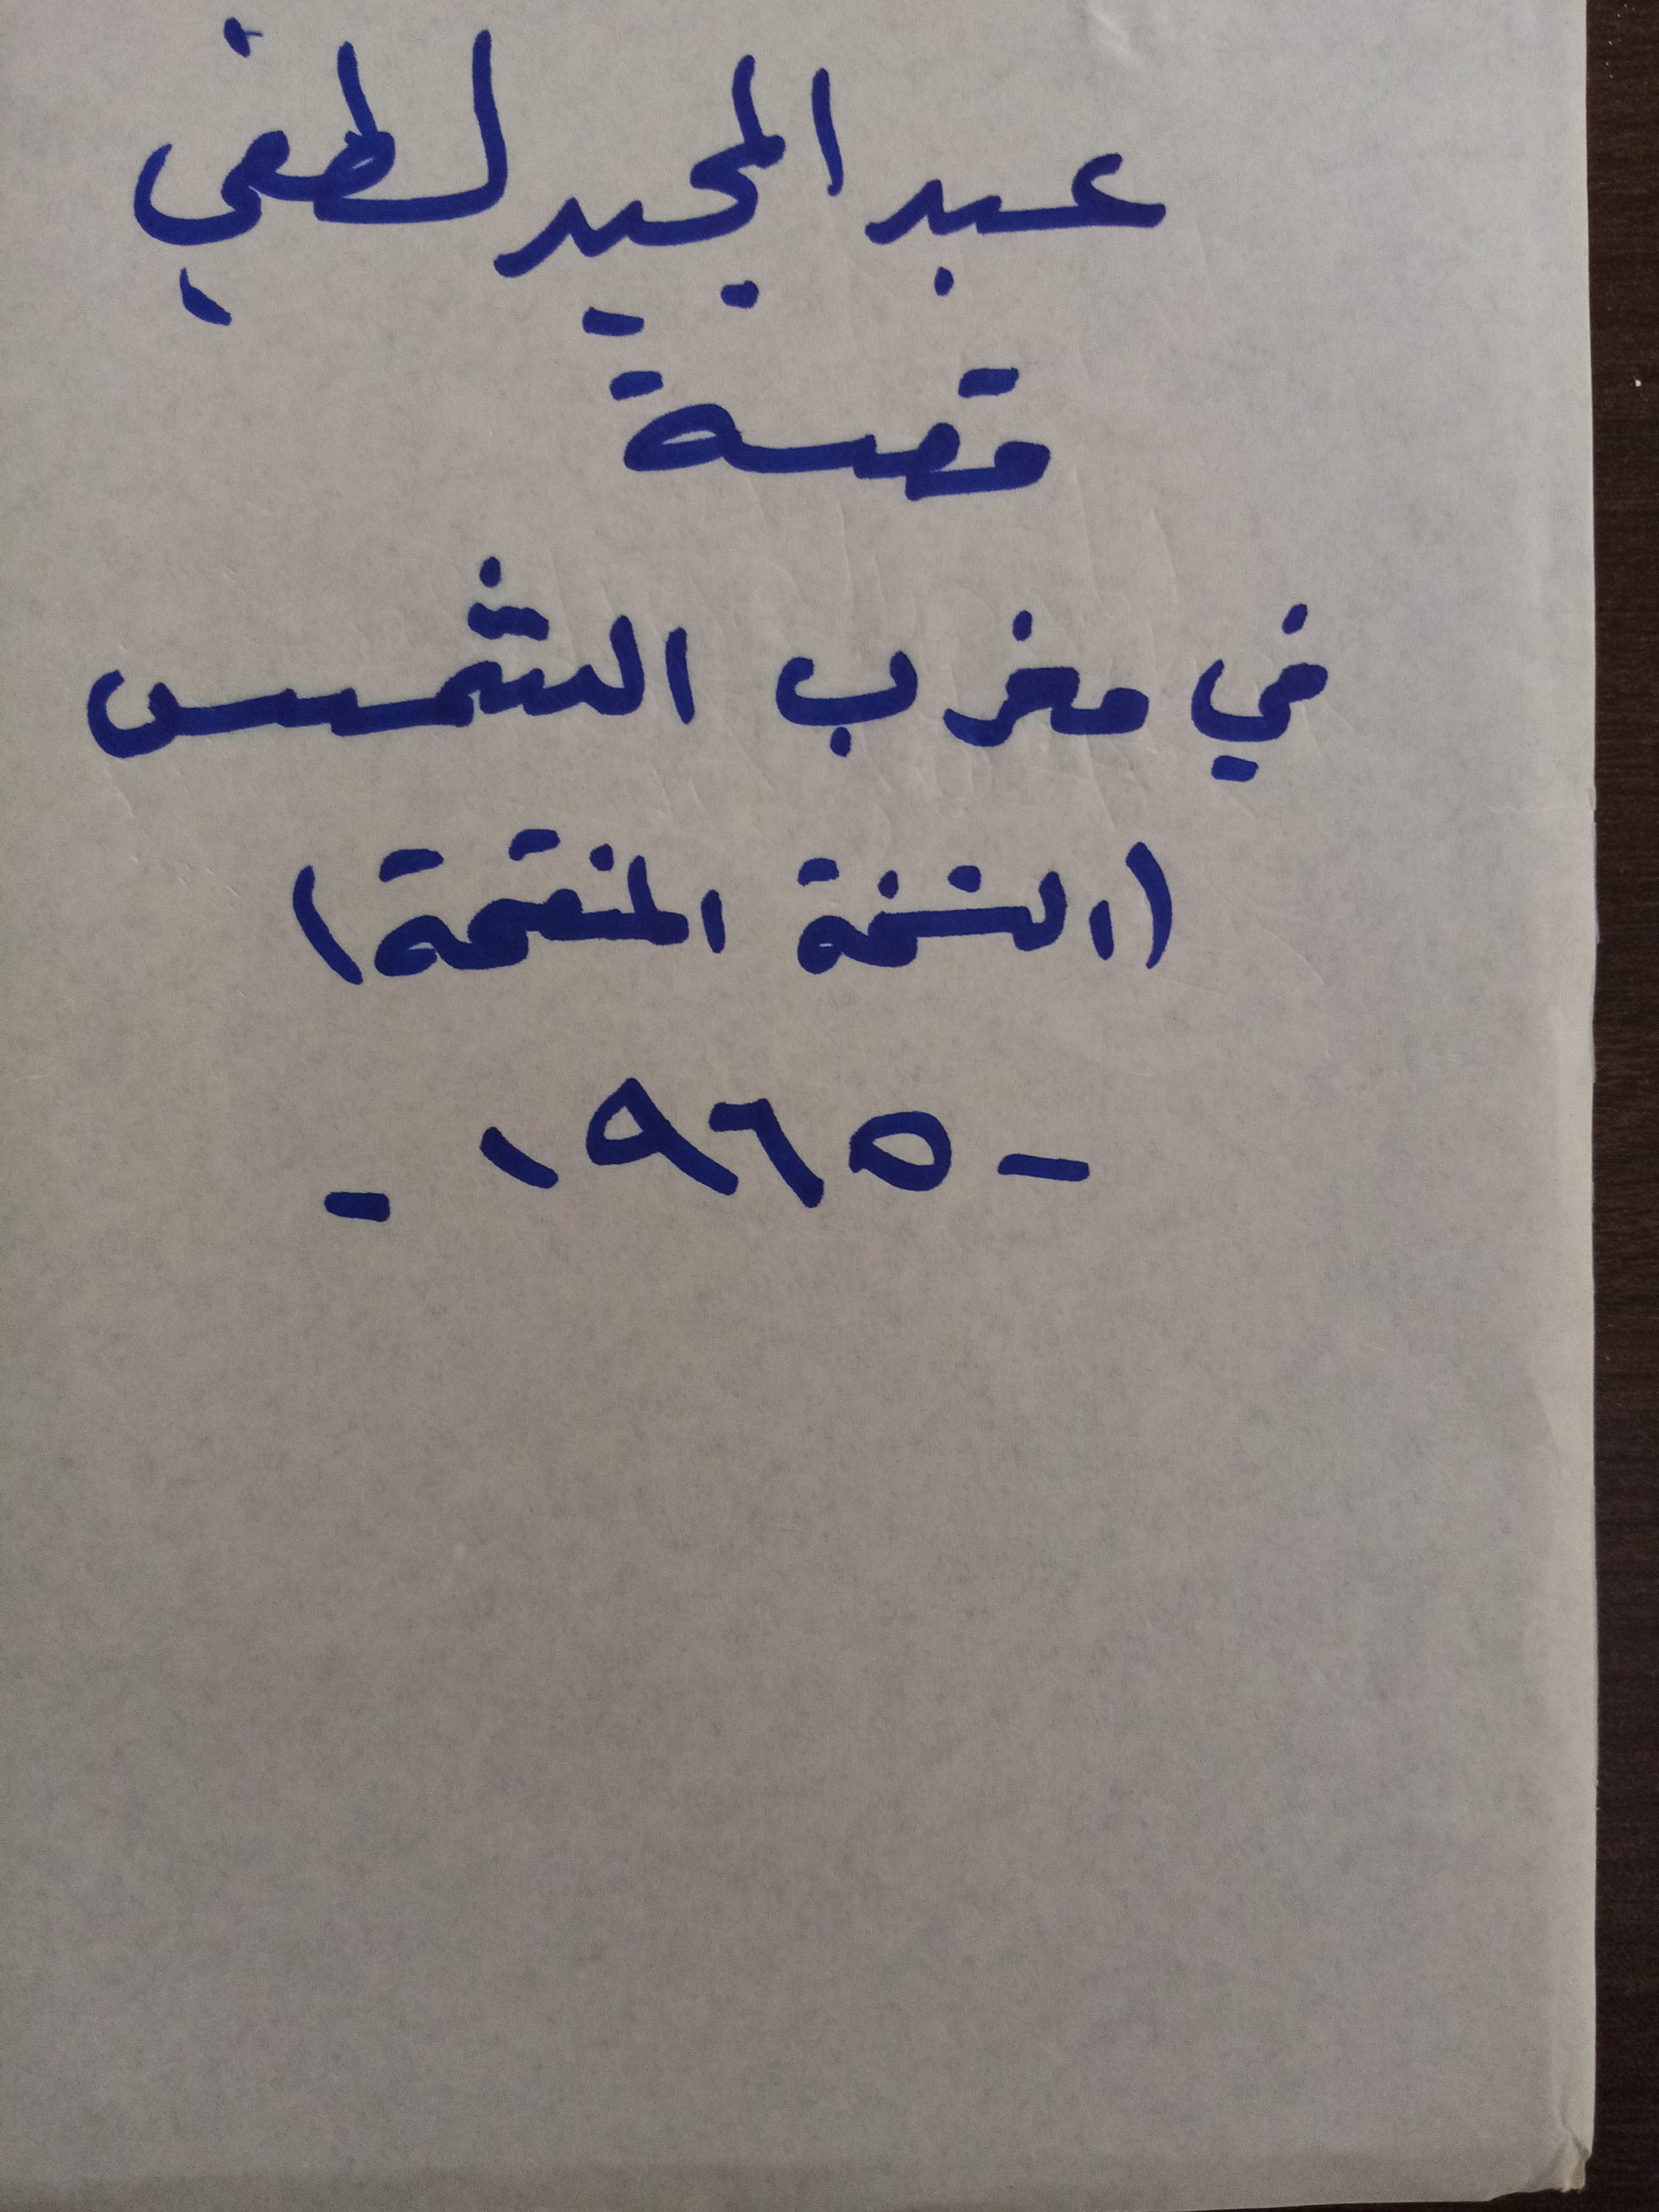 عبد المجيد لطفي
قصة
في مغرب الشمس
(النسخة المنقحة)
- ١٩٦٥ -